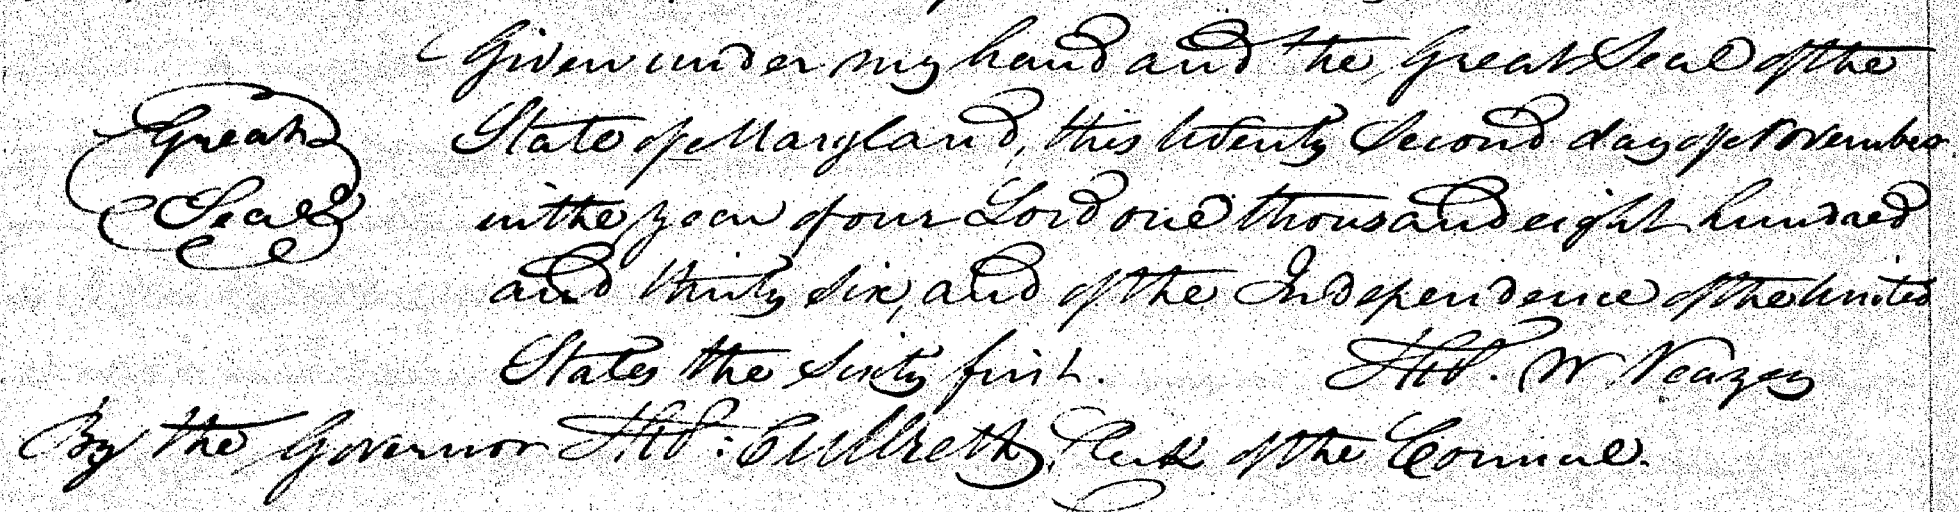 Given under my hand and the Great Seal of the
Great
State of Maryland, this twenty Second day of November
Seal
in the year of our Lord one thousand eight hundred
and thirty six, and of the Independence of the United
States the Sixty first. Tho. W. Veazey
By the Governor Tho: Culbreth, Clerk of the Council.